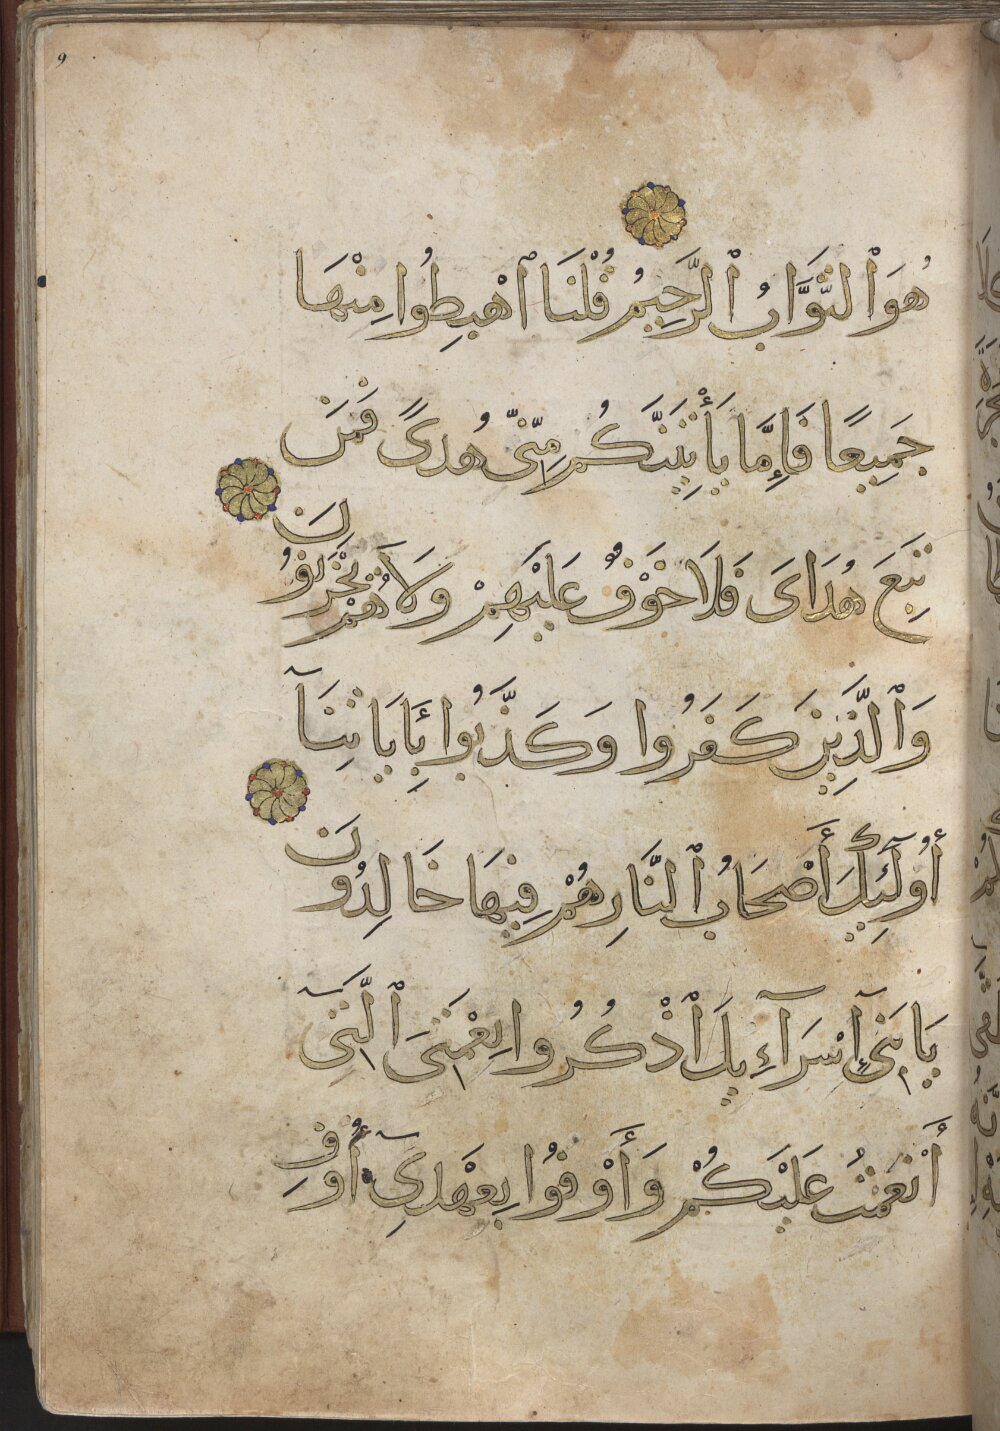 9
هُوَ ٱلتَّوَّابُ ٱلرَّحِيمُ قُلْنَا ٱهْبِطُوا مِنْهَا
جَمِيعًا فَإِمَّا يَأْتِيَنَّكُم مِّنِّى هُدًى فَمَن
تَبِعَ هُدَاىَ فَلَا خَوْفٌ عَلَيْهِمْ وَلَا هُمْ يَحْزَنُونَ
وَٱلَّذِينَ كَفَرُوا وَكَذَّبُوا بِـَٔايَاتِنَآ
أُولَٰٓئِكَ أَصْحَابُ ٱلنَّارِ هُمْ فِيهَا خَالِدُونَ
يَابَنِىٓ إِسْرَآءِيلَ ٱذْكُرُوا نِعْمَتِىَ ٱلَّتِىٓ
أَنْعَمْتُ عَلَيْكُمْ وَأَوْفُوا بِعَهْدِىٓ أُوفِ